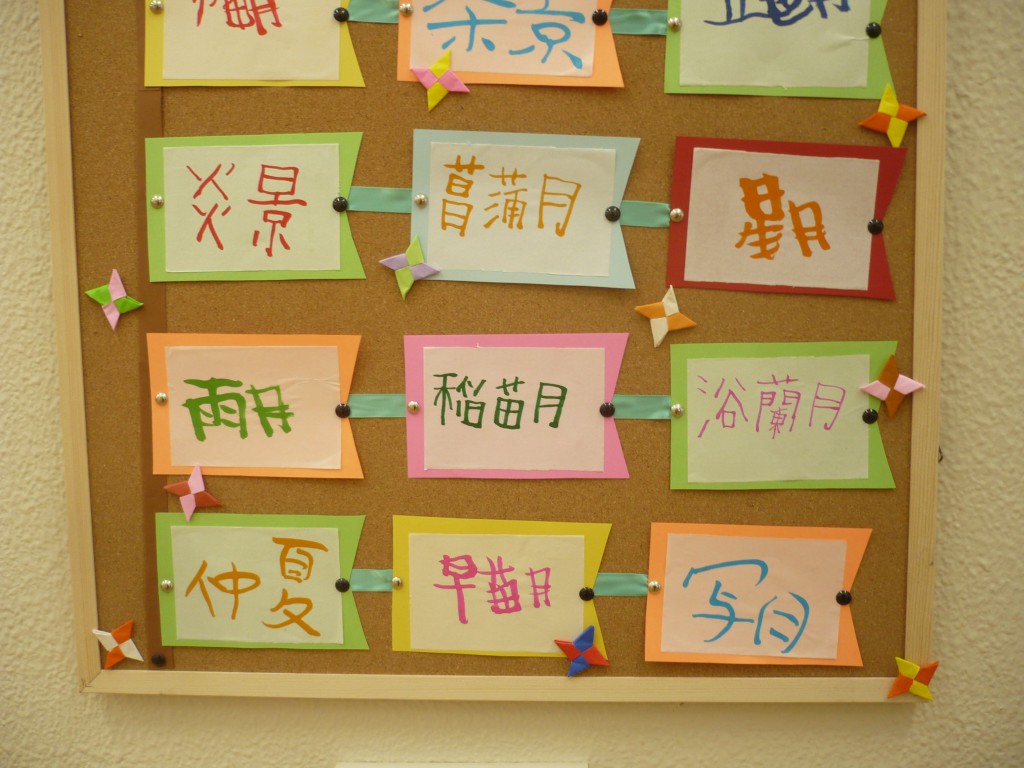 炎景 菖蒲月 星月
雨月 稲苗月 浴蘭月
仲夏 早苗月 写月